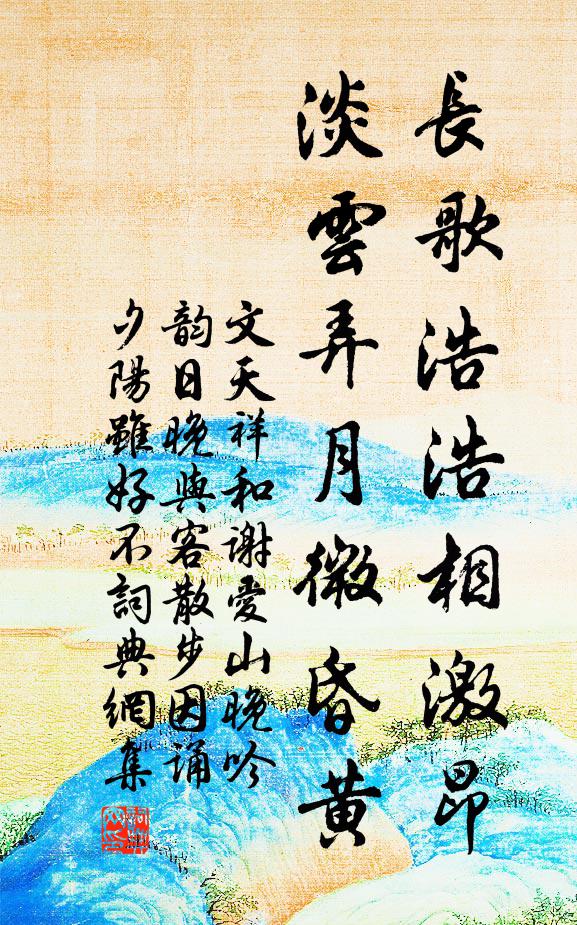 長歌浩浩相激昂
淡雲弄月微昏黃
文天祥和謝愛山晚吟
韵日晚與客散步因誦
夕陽雖好不詞典網集